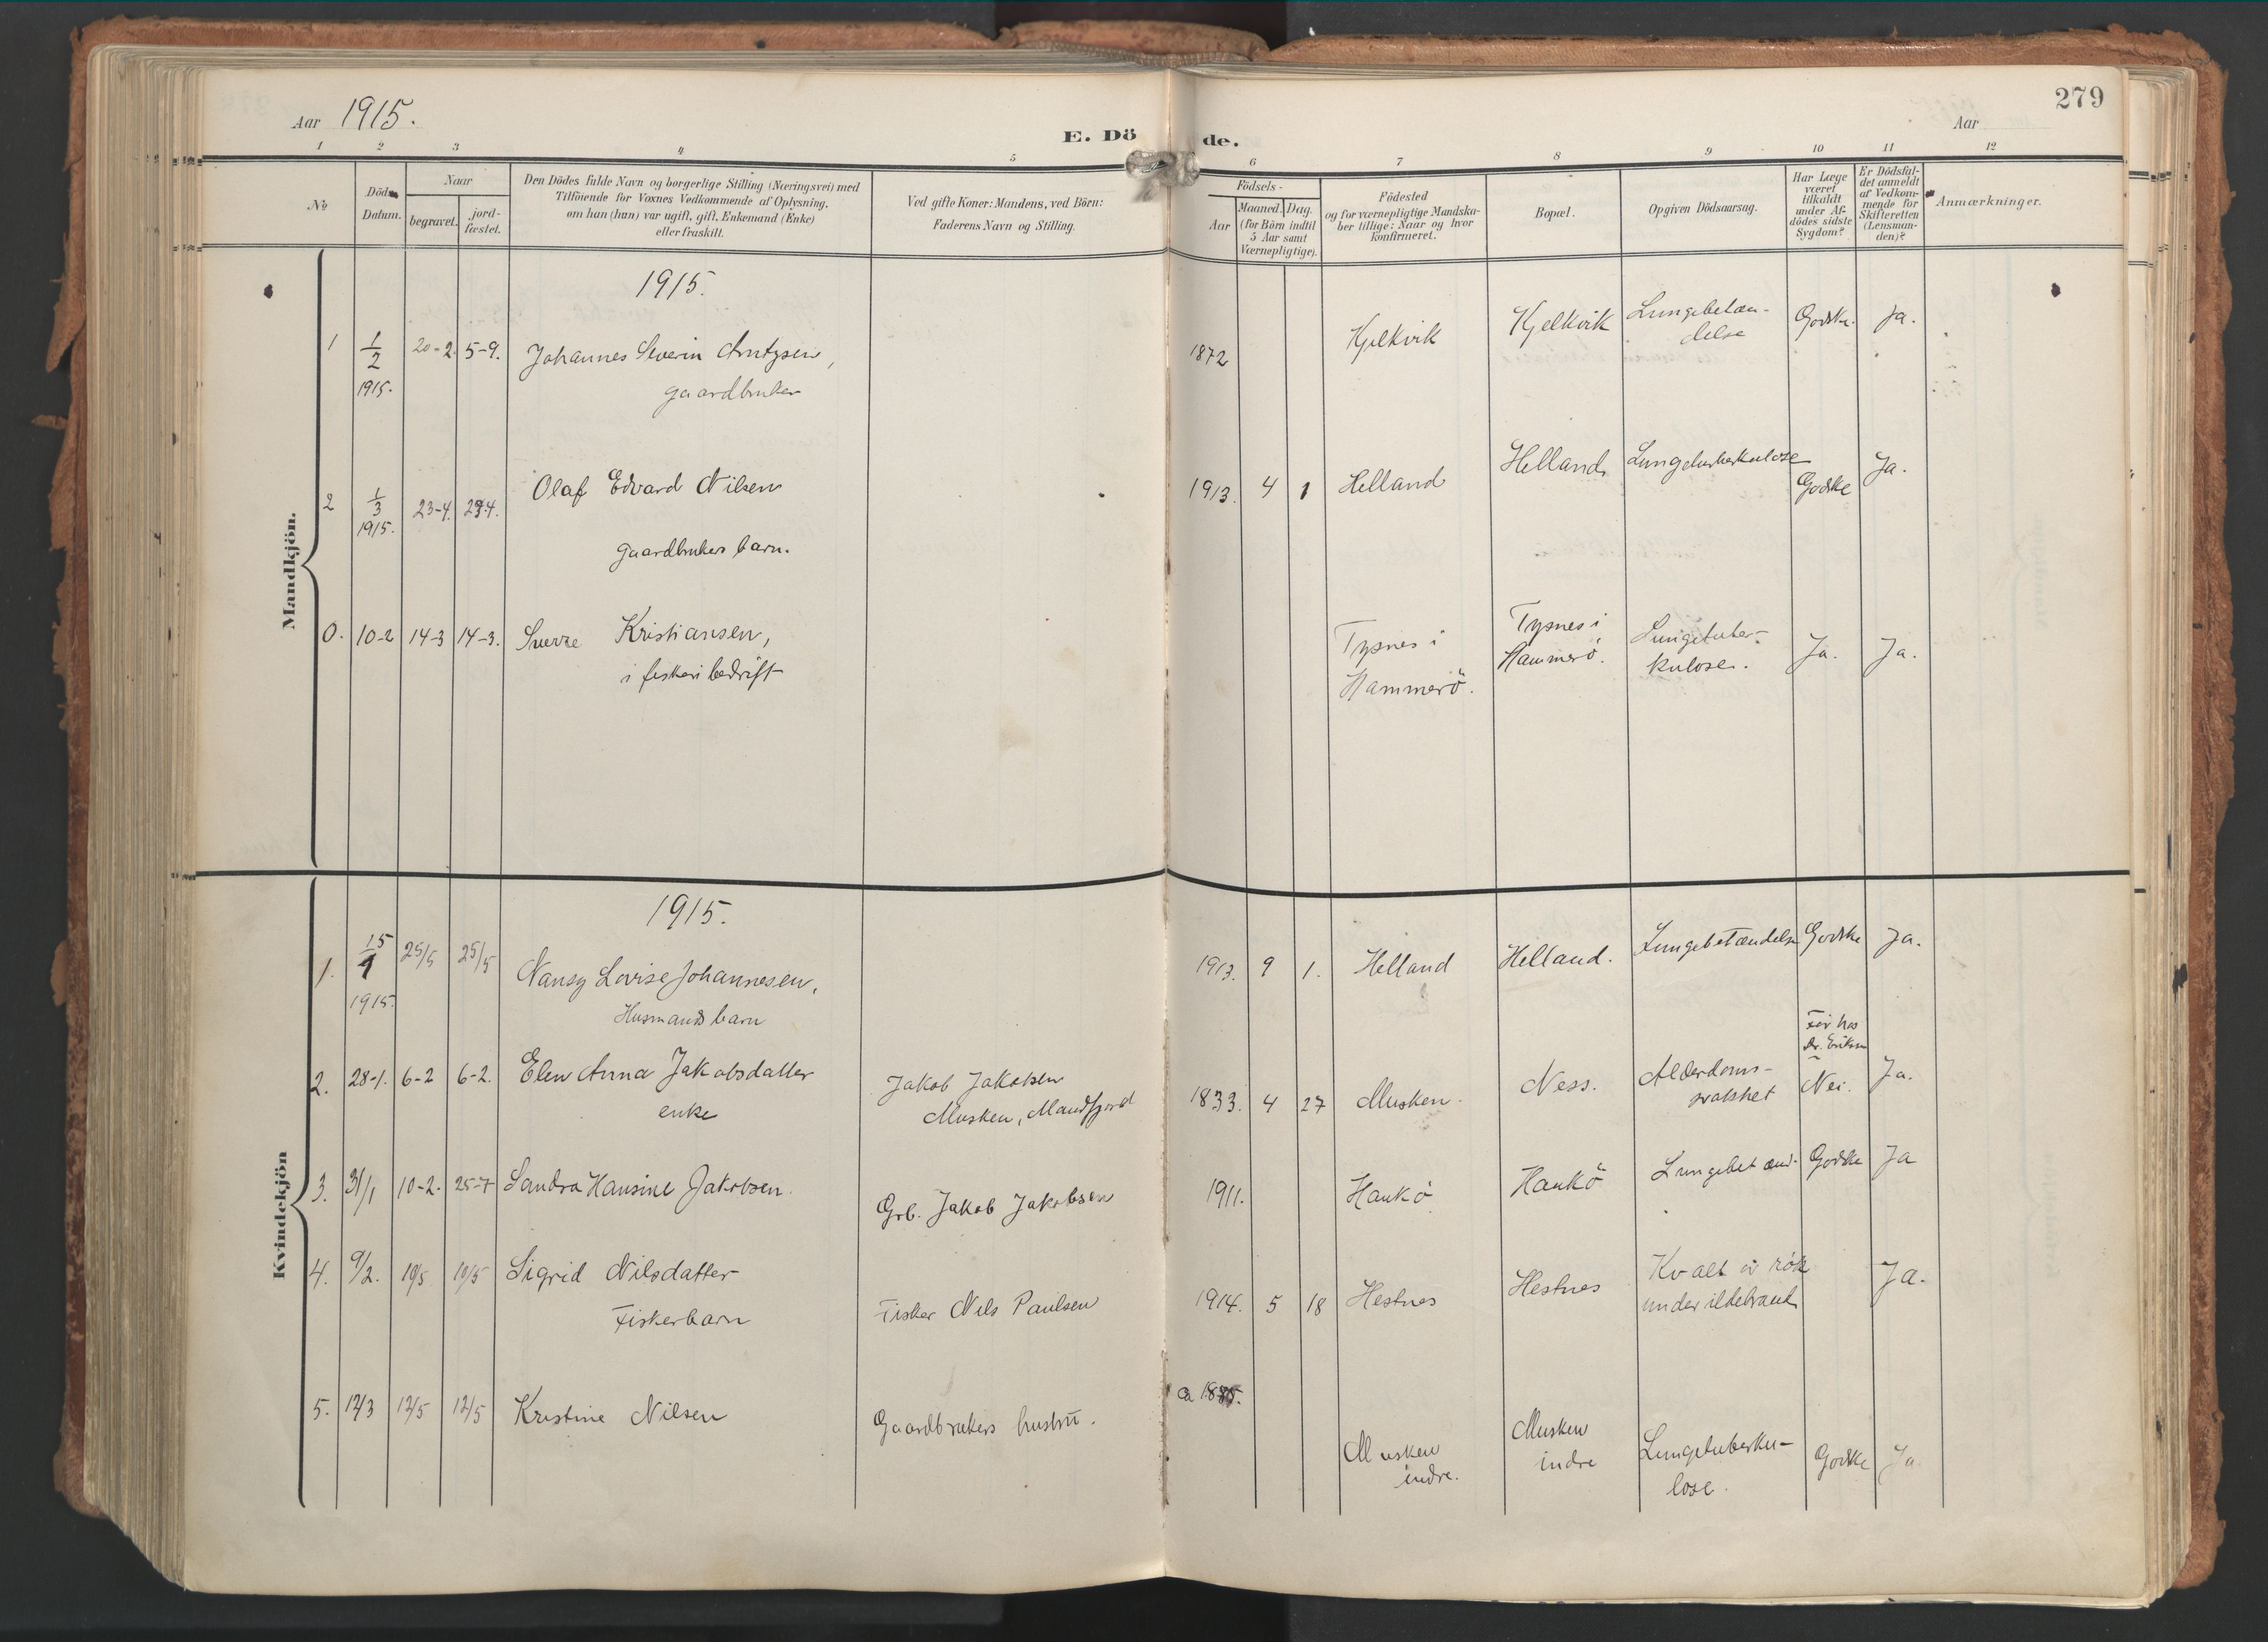 279
Aar 1915.
Aar
E. Dö de.
1 2 3 4 5 6 7 8 9 10 11 12
No
Döds-
Datum.
Naar
begravet.
jord-
fæstet.
Den Dödes fulde Navn og borgerlige Stilling (Næringsvei) med
Tilföiende for Voxnes Vedkommende af Oplysning,
om han (hun) var ugift, gift, Enkemand (Enke)
eller fraskilt.
Ved gifte Koner: Mandens, ved Börn:
Faderens Navn og Stilling.
Födsels-
Aar
Maaned. Dag.
(for Börn indtil
5 Aar samt
Værnepligtige).
Födested
og for værnepligtige Mandska-
ber tillige: Naar og hvor
konfirmeret.
Bopæl.
Opgiven Dödsaarsag.
Har Læge
været
tilkaldt
under Af-
dödes sidste
Sygdom?
Er Dödsfal-
det anmeldt
af Vedkom-
mende for
Skifteretten
(Lensman-
den)?
Anmærkninger.
Mandkjön.
1915.
1 1/2 1915. 20-2. 5-9. Johannes Severin Arntzsen,
gaardbruker
1872 Kjelkvik Kjelkvik Lungebetæn-
delse
Godske. Ja.
2 1/3 1915. 23-4. Olaf Edvard Nilsen
gaardbrukers barn.
1913. 4 1 Helland Helland Lungetuberkulose Godske Ja.
0. 10-2 14-3 14-3. Sverre Kristiansen,
i fiskeribedrift
Tysnes i
Hammerö.
Tysnes i
Hammerö.
Lungetuber-
kulose.
Ja. Ja.
Kvindekjön
1915.
1. 1915. 25/5 25/5 Nansy Lovise Johannesen,
Husmands barn
1913. 9 1. Helland Helland. Lungebetændelse Godske Ja.
2. 28-1. 6-2 6-2. Elen Anna Jakobsdatter
enke
Jakob Jakobsen
Musken, Mandfjord
1833. 4 27 Musken. Ness. Alderdoms-
svakhet
Før hos
Dr. Eriksen
Nei. Ja.
3. 31/1 10-2. 25-7 Sandra Hansine Jakobsen.
Grb. Jakob Jakobsen
1911. Haukö Haukö Lungebetænd. Godske Ja
4. 9/2. 10/5 10/5 Sigrid Nilsdatter
Fiskerbarn
Fisker Nils Paulsen
1914. 5 18 Hestnes Hestnes Kvalt i røk
under ildebrand
Ja.
5. 12/3 12/5 12/5 Kristine Nilsen
Gaardbrukers hustru.
Musken
indre.
Musken
indre
Lungetuberku-
lose.
Godske Ja